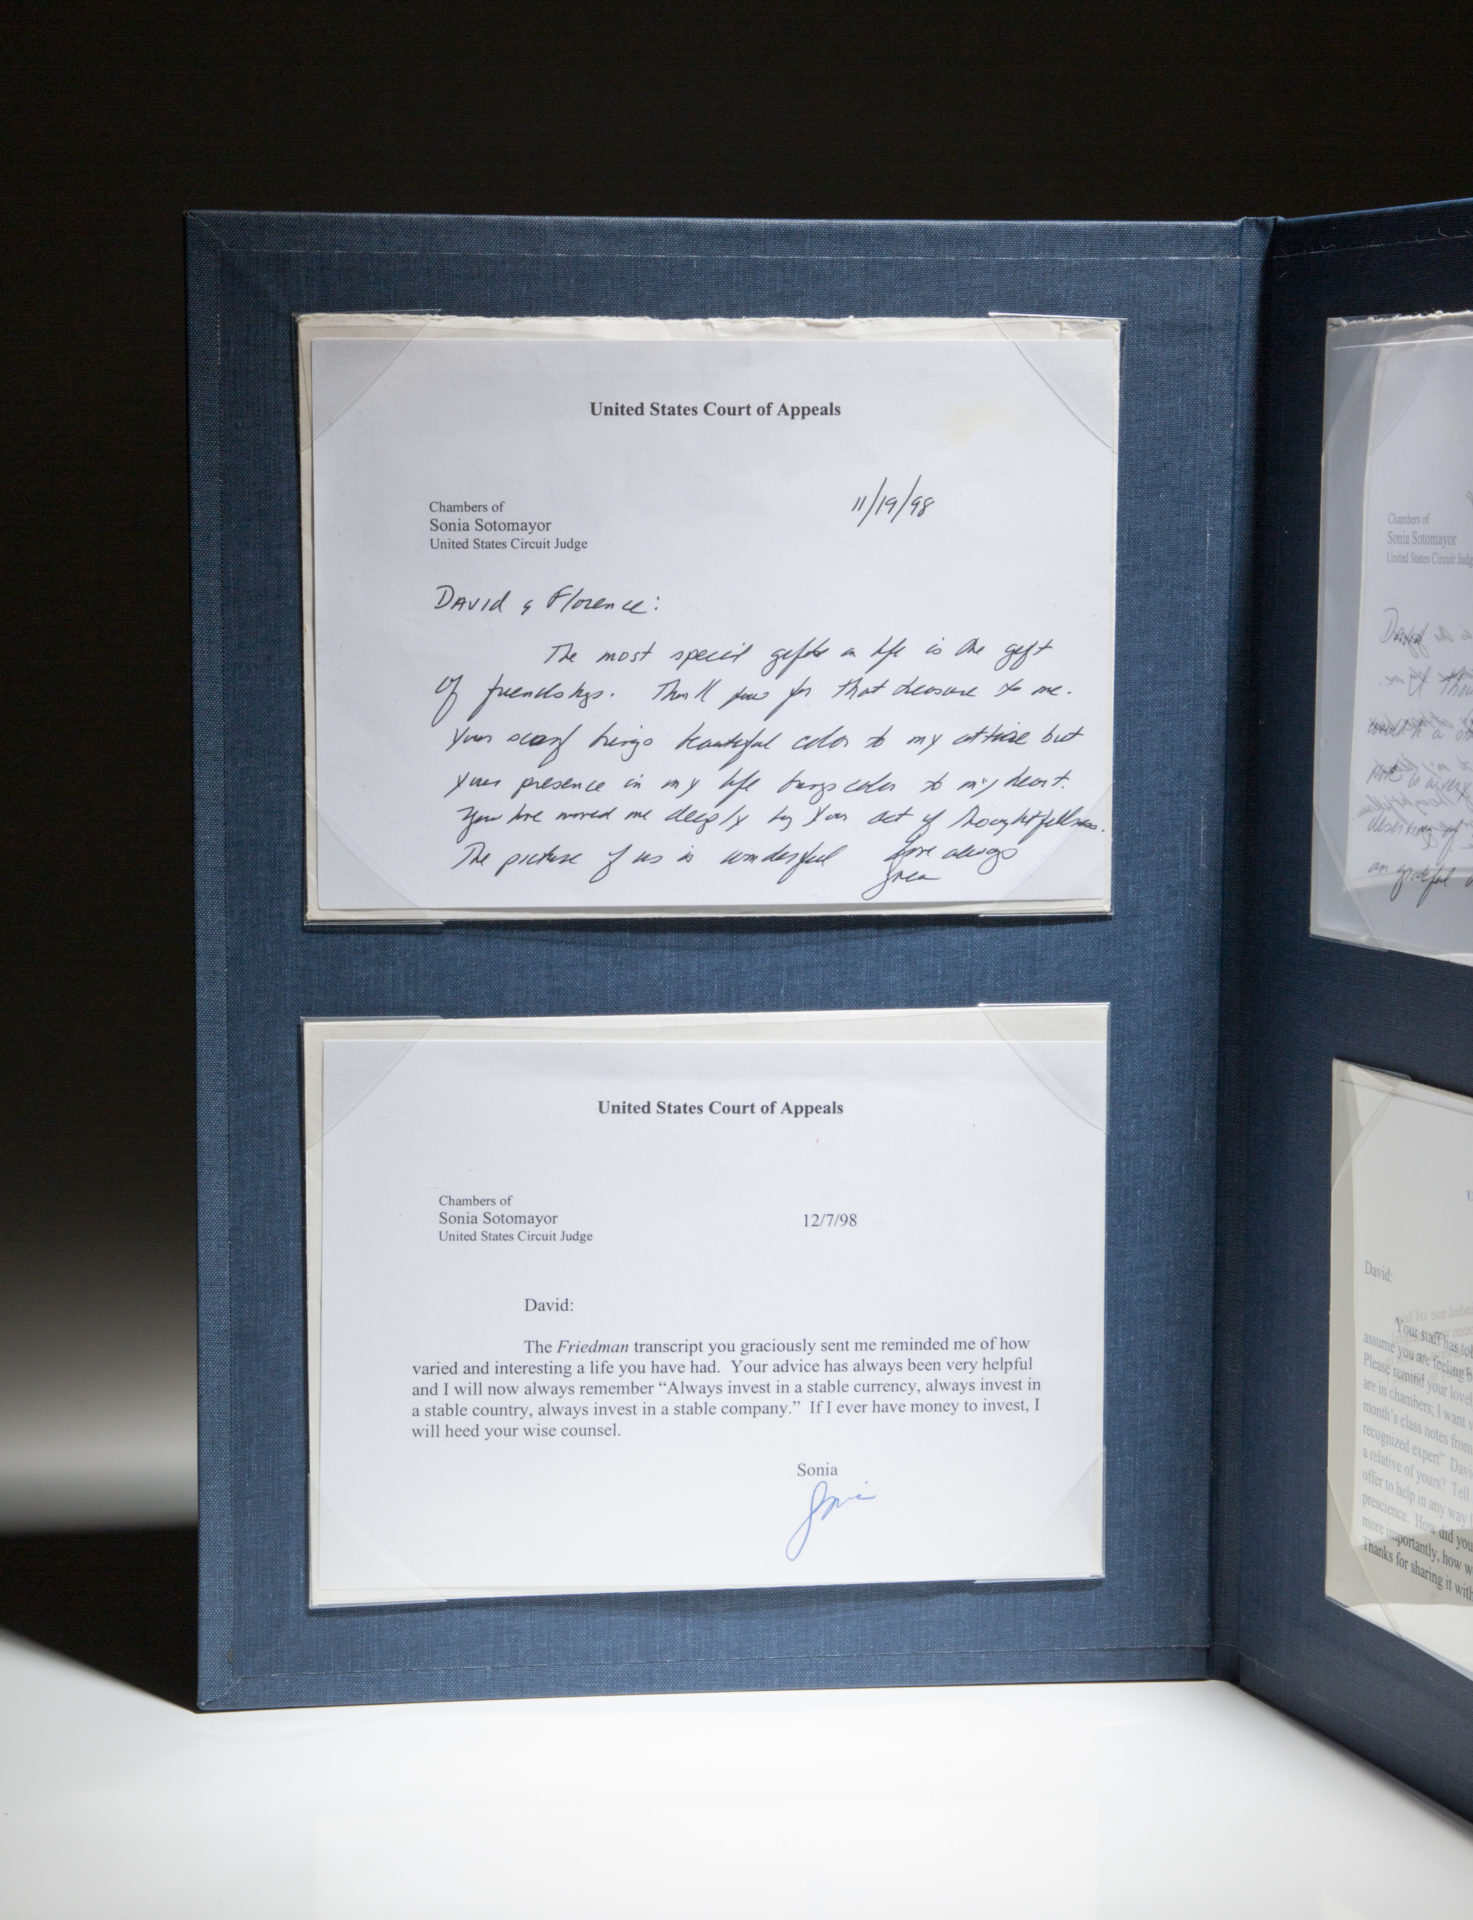 United States Court of Appeals
11/19/98
Chambers of
Sonia Sotomayor
United States Circuit Judge
David & Florence:
The most special gifts in life is the gift
of friendship. Thank you for that treasure to me.
Your scarf brings beautiful color to my attire but
your presence in my life brings color to my heart.
You have moved me deeply by your act of thoughtfullness.
The picture of us is wonderful Love always
Sonia
United States Court of Appeals
Chambers of
Sonia Sotomayor
United States Circuit Judge
12/7/98
David:
The Friedman transcript you graciously sent me reminded me of how
varied and interesting a life you have had. Your advice has always been very helpful
and I will now always remember “Always invest in a stable currency, always invest in
a stable country, always invest in a stable company.” If I ever have money to invest, I
will heed your wise counsel.
Sonia
Sonia
Chambers of
Sonia Sotomayor
United States Circuit
an grateful
David:
Your staff has
assume you are feeling
Please remind your
are in chambers, I want
month's class notes from
recognized expert"
a relative of yours? Tell
offer to help in any way
prescience. How did you
more importantly, how
Thanks for sharing it with